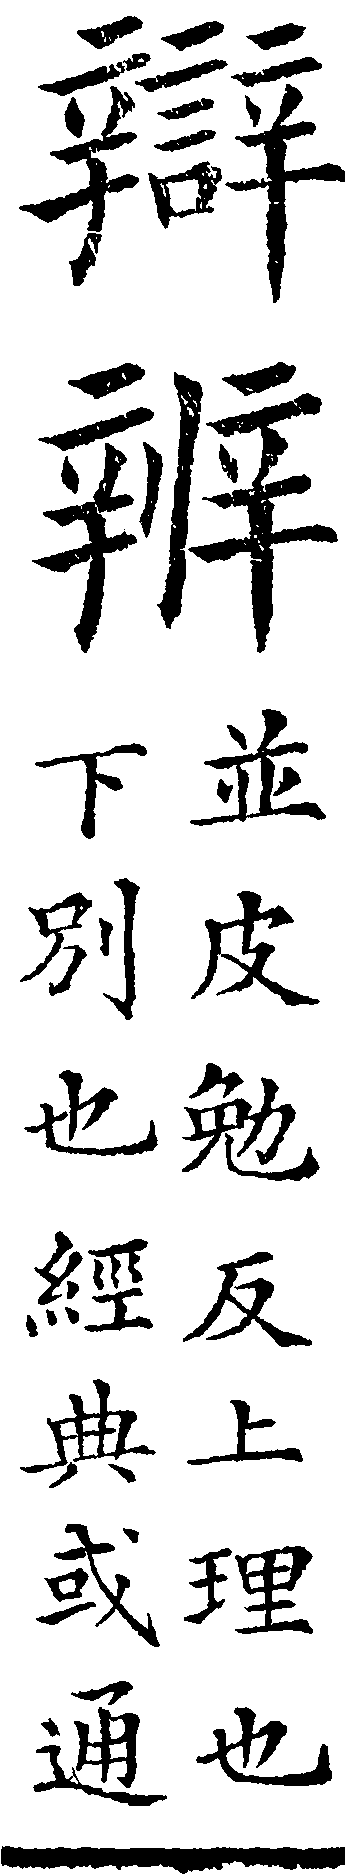 辯辨
並皮勉反上理也
下別也經典或通